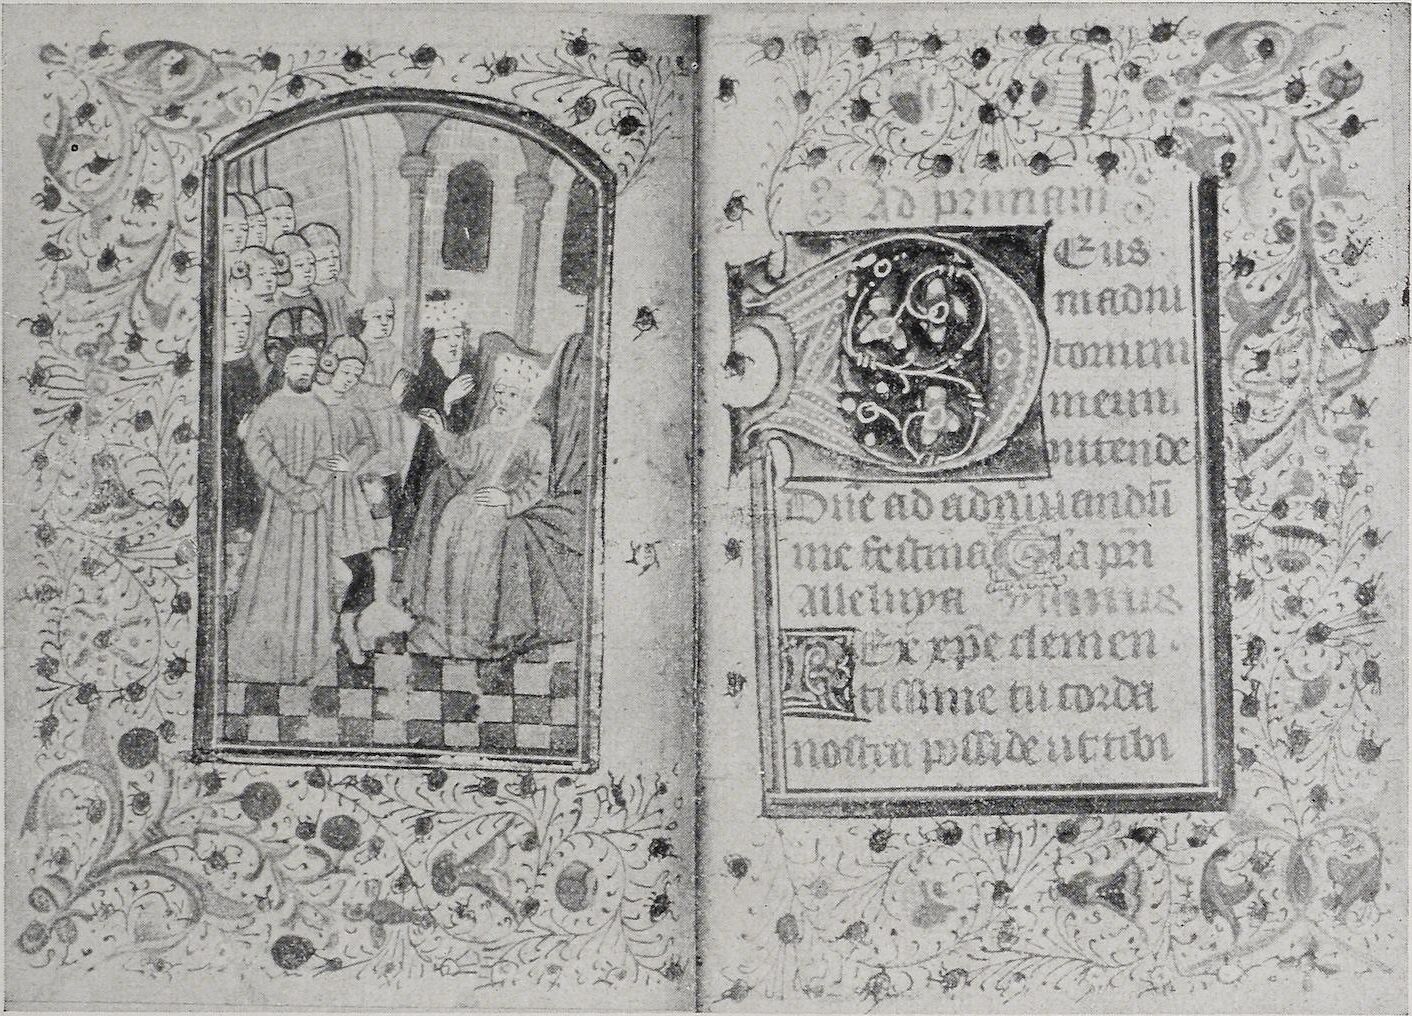 Ad primam
Eus
in adiu
torium
meum
intende
Dñe ad adiuuandũ
me festina Gl'a pri
Alleluya ymnus
Ex xp̃e clemen
tissime tu corda
nostra posside ut tibi